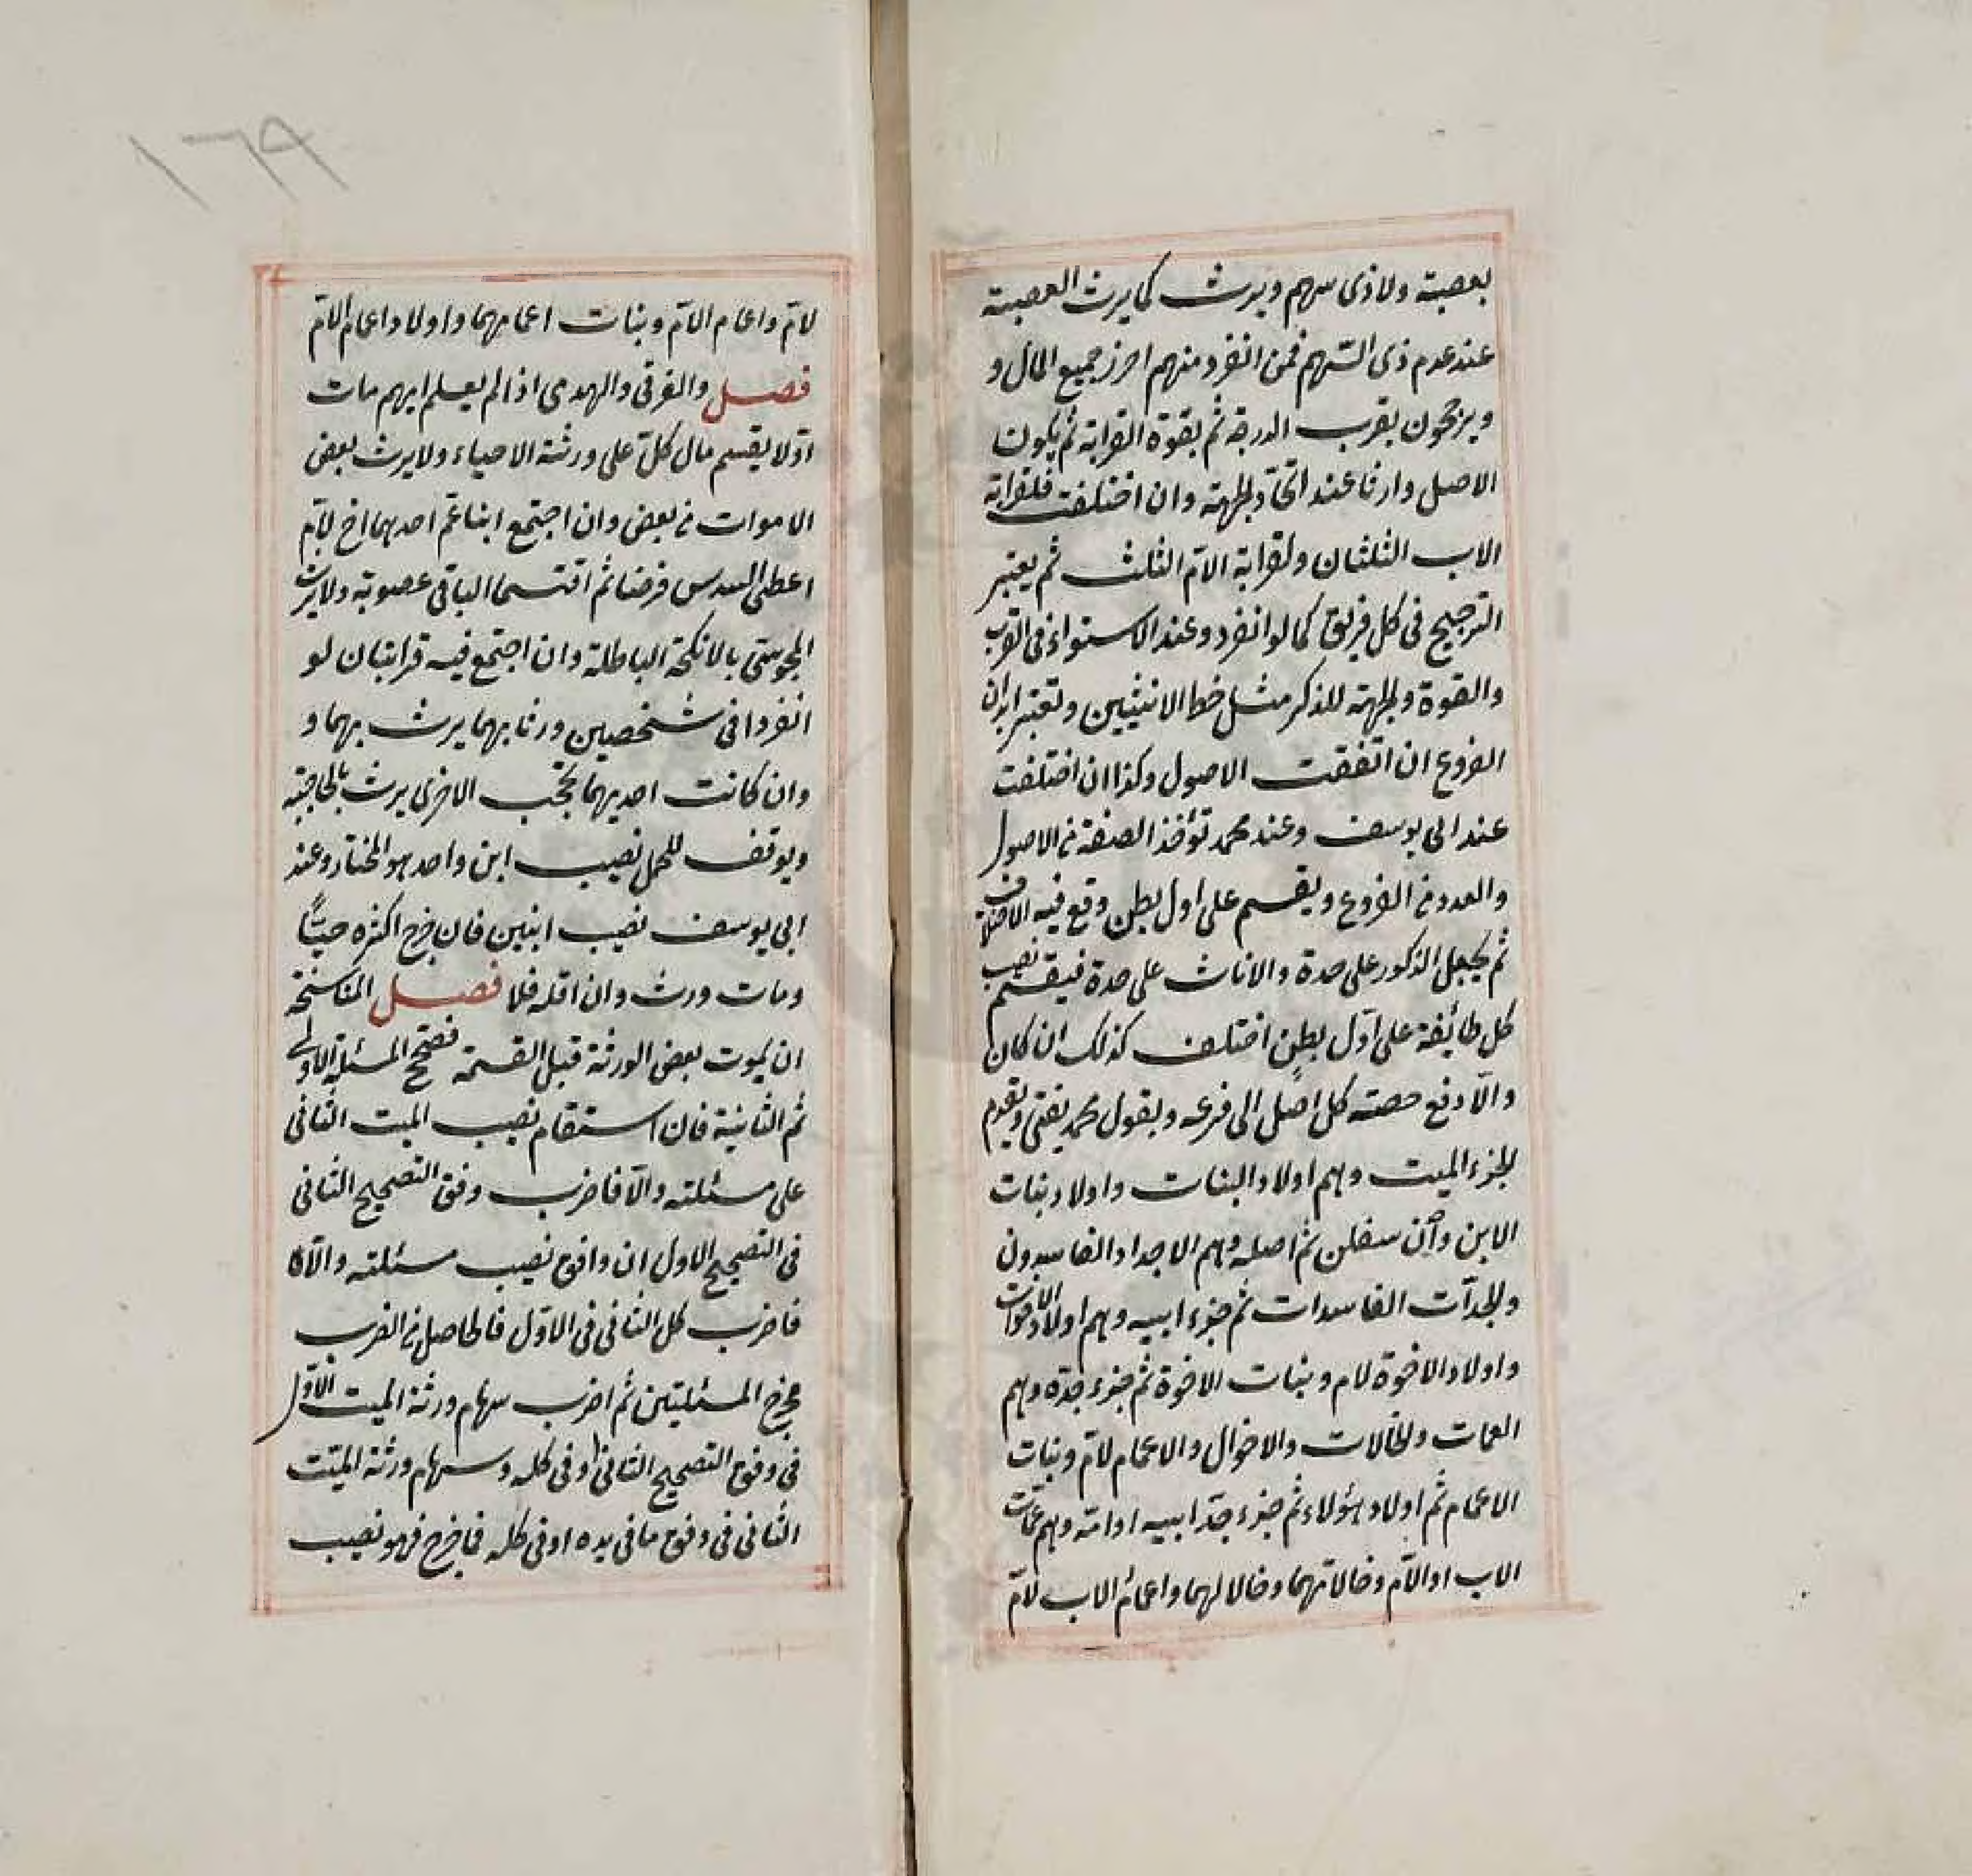 بعصبة ولا ذى سهم ويرث كما يرث العصبة
عند عدم ذى السّهم فمن انفرد منهم احرز جميع المال و
ويرجحون بقرب الدرجة ثم بقوة القرابة ثم بكون
الاصل وارثا عند اتحاد الجهة وان اختلفت فلقرابة
الاب الثلثان ولقرابة الام الثلث ثم يعتبر
الترجيح فى كل فريق كما لو انفرد وعند الاستواء فى القرب
والقوة والجهة للذكر مثل حظ الانثيين وتعتبر ابدان
الفروع ان اتفقت الاصول وكذا ان اختلفت
عند ابى يوسف وعند محمد تؤخذ الصفة من الاصول
والعدد من الفروع ويقسم على اول بطن وقع فيه الاختلاف
ثم يجعل الذكور على حدة والاناث على حدة فيقسم نصيب
كل طائفة على اوّل بطن اختلف كذلك ان كان
والّا دفع حصته كل اصل الى فرعه وبقول محمد يفتى ويقدم
جزء الميت وهم اولاد البنات واولاد بنات
الابن وان سفلن ثم اصله وهم الاجداد الفاسدون
والجدّات الفاسدات ثم جزء ابيه وهم اولاد الاخوات
واولاد الاخوة لام وبنات الاخوة ثم جزء جدّه وهم
العمات والخالات والاخوال والاعمام لامّ وبنات
الاعمام ثم اولاد هؤلاء ثم جزء جدّ ابيه او امّه وهم عمّات
الاب او الامّ وخالاتهما وخالا لهما واعمام الاب لامّ
١٦٩
لامّ واعمام الامّ وبنات اعمامهما واولاد اعمام الامّ
فصل والغرقى والهدمى اذا لم يعلم ايهم مات
اوّلا يقسم مال كلّ على ورثة الاحياء ولا يرث بعض
الاموات من بعض وان اجتمع ابنا عمّ احدهما اخ لامّ
اعطى السدس فرضا ثم اقتسما الباقى عصوبة ولا يرث
المجوسىّ بالانكحة الباطلة وان اجتمع فيه قرابتان لو
انفردا فى شخصين ورثا بهما يرث بهما و
وان كانت احديهما تحجب الاخرى يرث بالحاجبة
ويوقف للحمل نصيب ابن واحد هو المختار وعند
ابى يوسف نصيب ابنين فان خرج اكثره حيّا
ومات ورث وان اقله فلا فصل المناسخة
ان يموت بعض الورثة قبل القسمة فصحّح المسئلة الاولى
ثم الثانية فان استقام نصيب الميت الثانى
على مسئلته والّا فاضرب وفق التصحيح الثانى
فى التصحيح الاول ان وافق نصيب مسئلته والّا فا
فاضرب كل الثانى فى الاوّل فالحاصل من الضرب
مخرج المسئلتين ثم اضرب سهام ورثة الميت الاوّل
فى وفق التصحيح الثانى او فى كله وسهام ورثة الميّت
الثانى فى وفق ما فى يده او فى كله فما خرج فهو نصيب